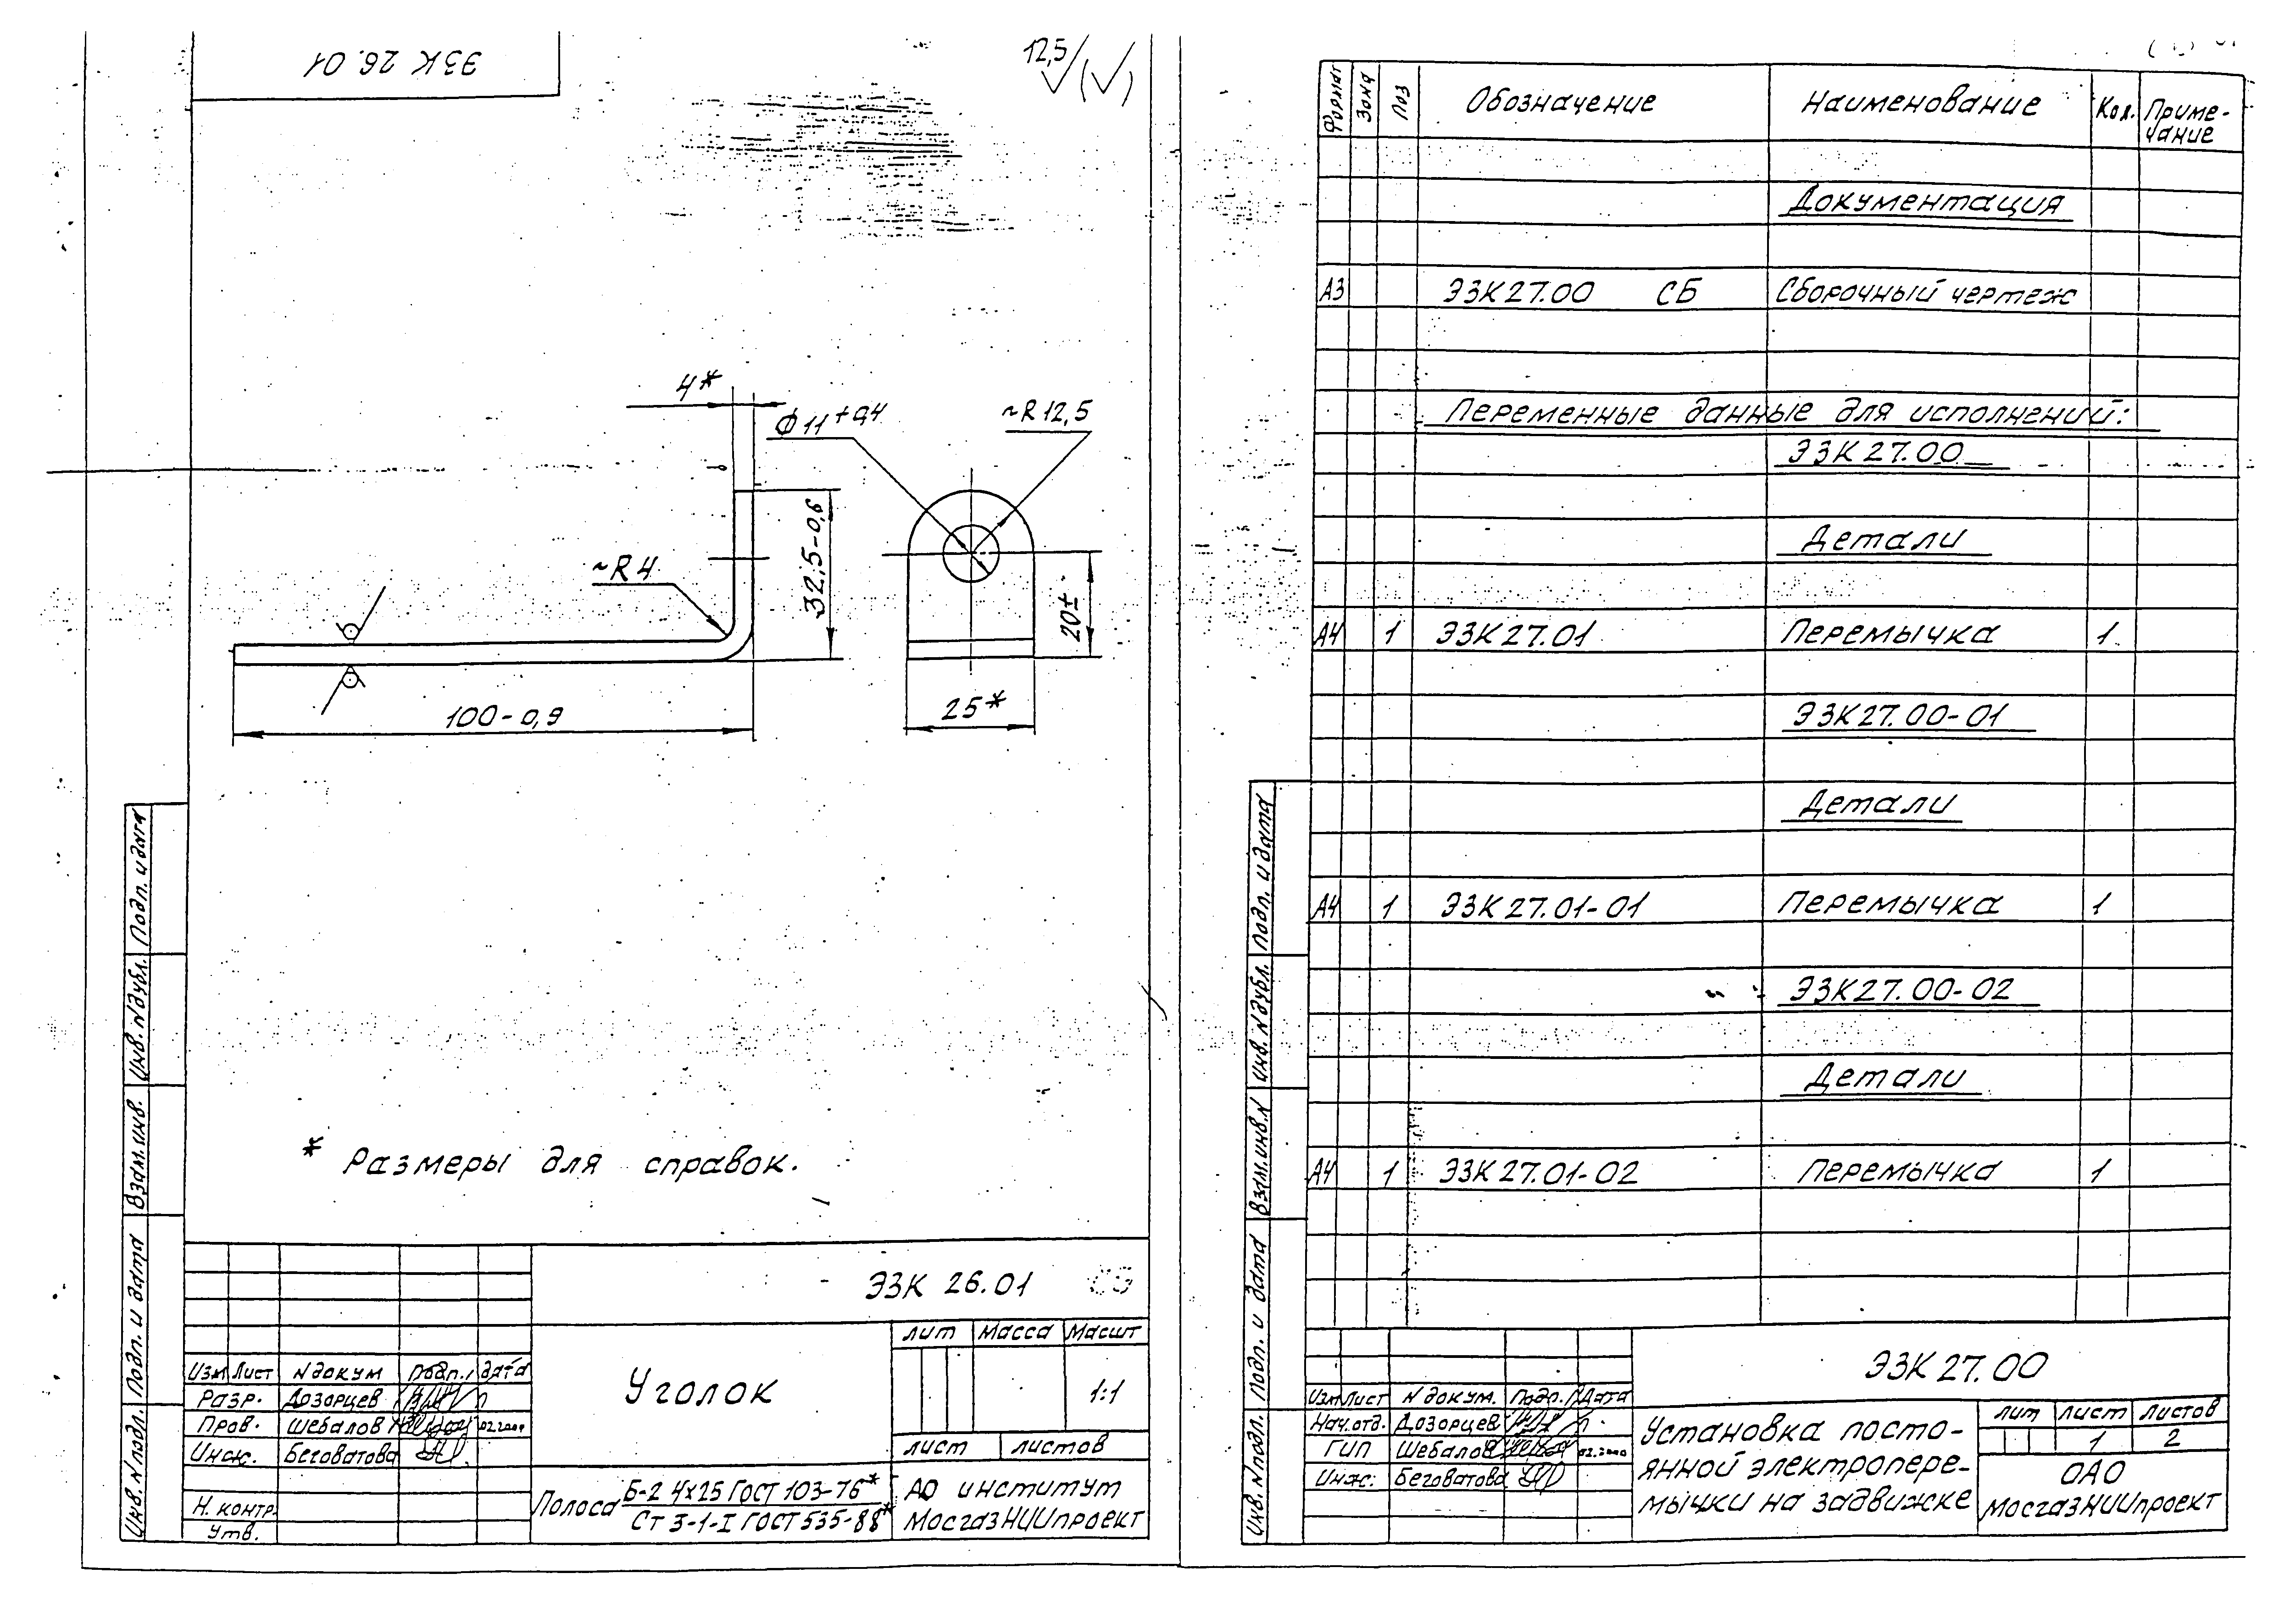 ЭЗК 26.01
12,5
4*
Ф11+0,4
~R12,5
~R4
32,5-0,6
20±
100-0,9
25*
* Размеры для справок.
Подп. и дата
Инв. N дубл.
Взам. инв.
Подп. и дата
Инв. N подл.
ЭЗК 26.01
Лит Масса Масшт
Изм Лист N докум Подп. Дата
Разр. Дозорцев
Пров. Шебалов
Инж. Беговатова
Н. контр.
Утв.
Уголок
1:1
Лист Листов
Полоса Б-2 4х25 ГОСТ 103-76*
Ст 3-1-I ГОСТ 535-88*
АО институт
МосгазНИИпроект
Формат Зона Поз Обозначение Наименование Кол. Приме-
чание
Документация
А3 ЭЗК27.00 СБ Сборочный чертеж
Переменные данные для исполнений:
ЭЗК27.00
Детали
А4 1 ЭЗК27.01 Перемычка 1
ЭЗК27.00-01
Детали
А4 1 ЭЗК27.01-01 Перемычка 1
ЭЗК27.00-02
Детали
А4 1 ЭЗК27.01-02 Перемычка 1
Подп. и дата
Инв. N дубл.
Взам. инв. N
Подп. и дата
Инв. N подл.
ЭЗК27.00
Изм Лист N докум. Подп. Дата
Нач. отд. Дозорцев
ГИП Шебалов 02.2000
Инж. Беговатова
Установка посто-
янной электропере-
мычки на задвижке
Лит Лист Листов
1 2
ОАО
МосгазНИИпроект